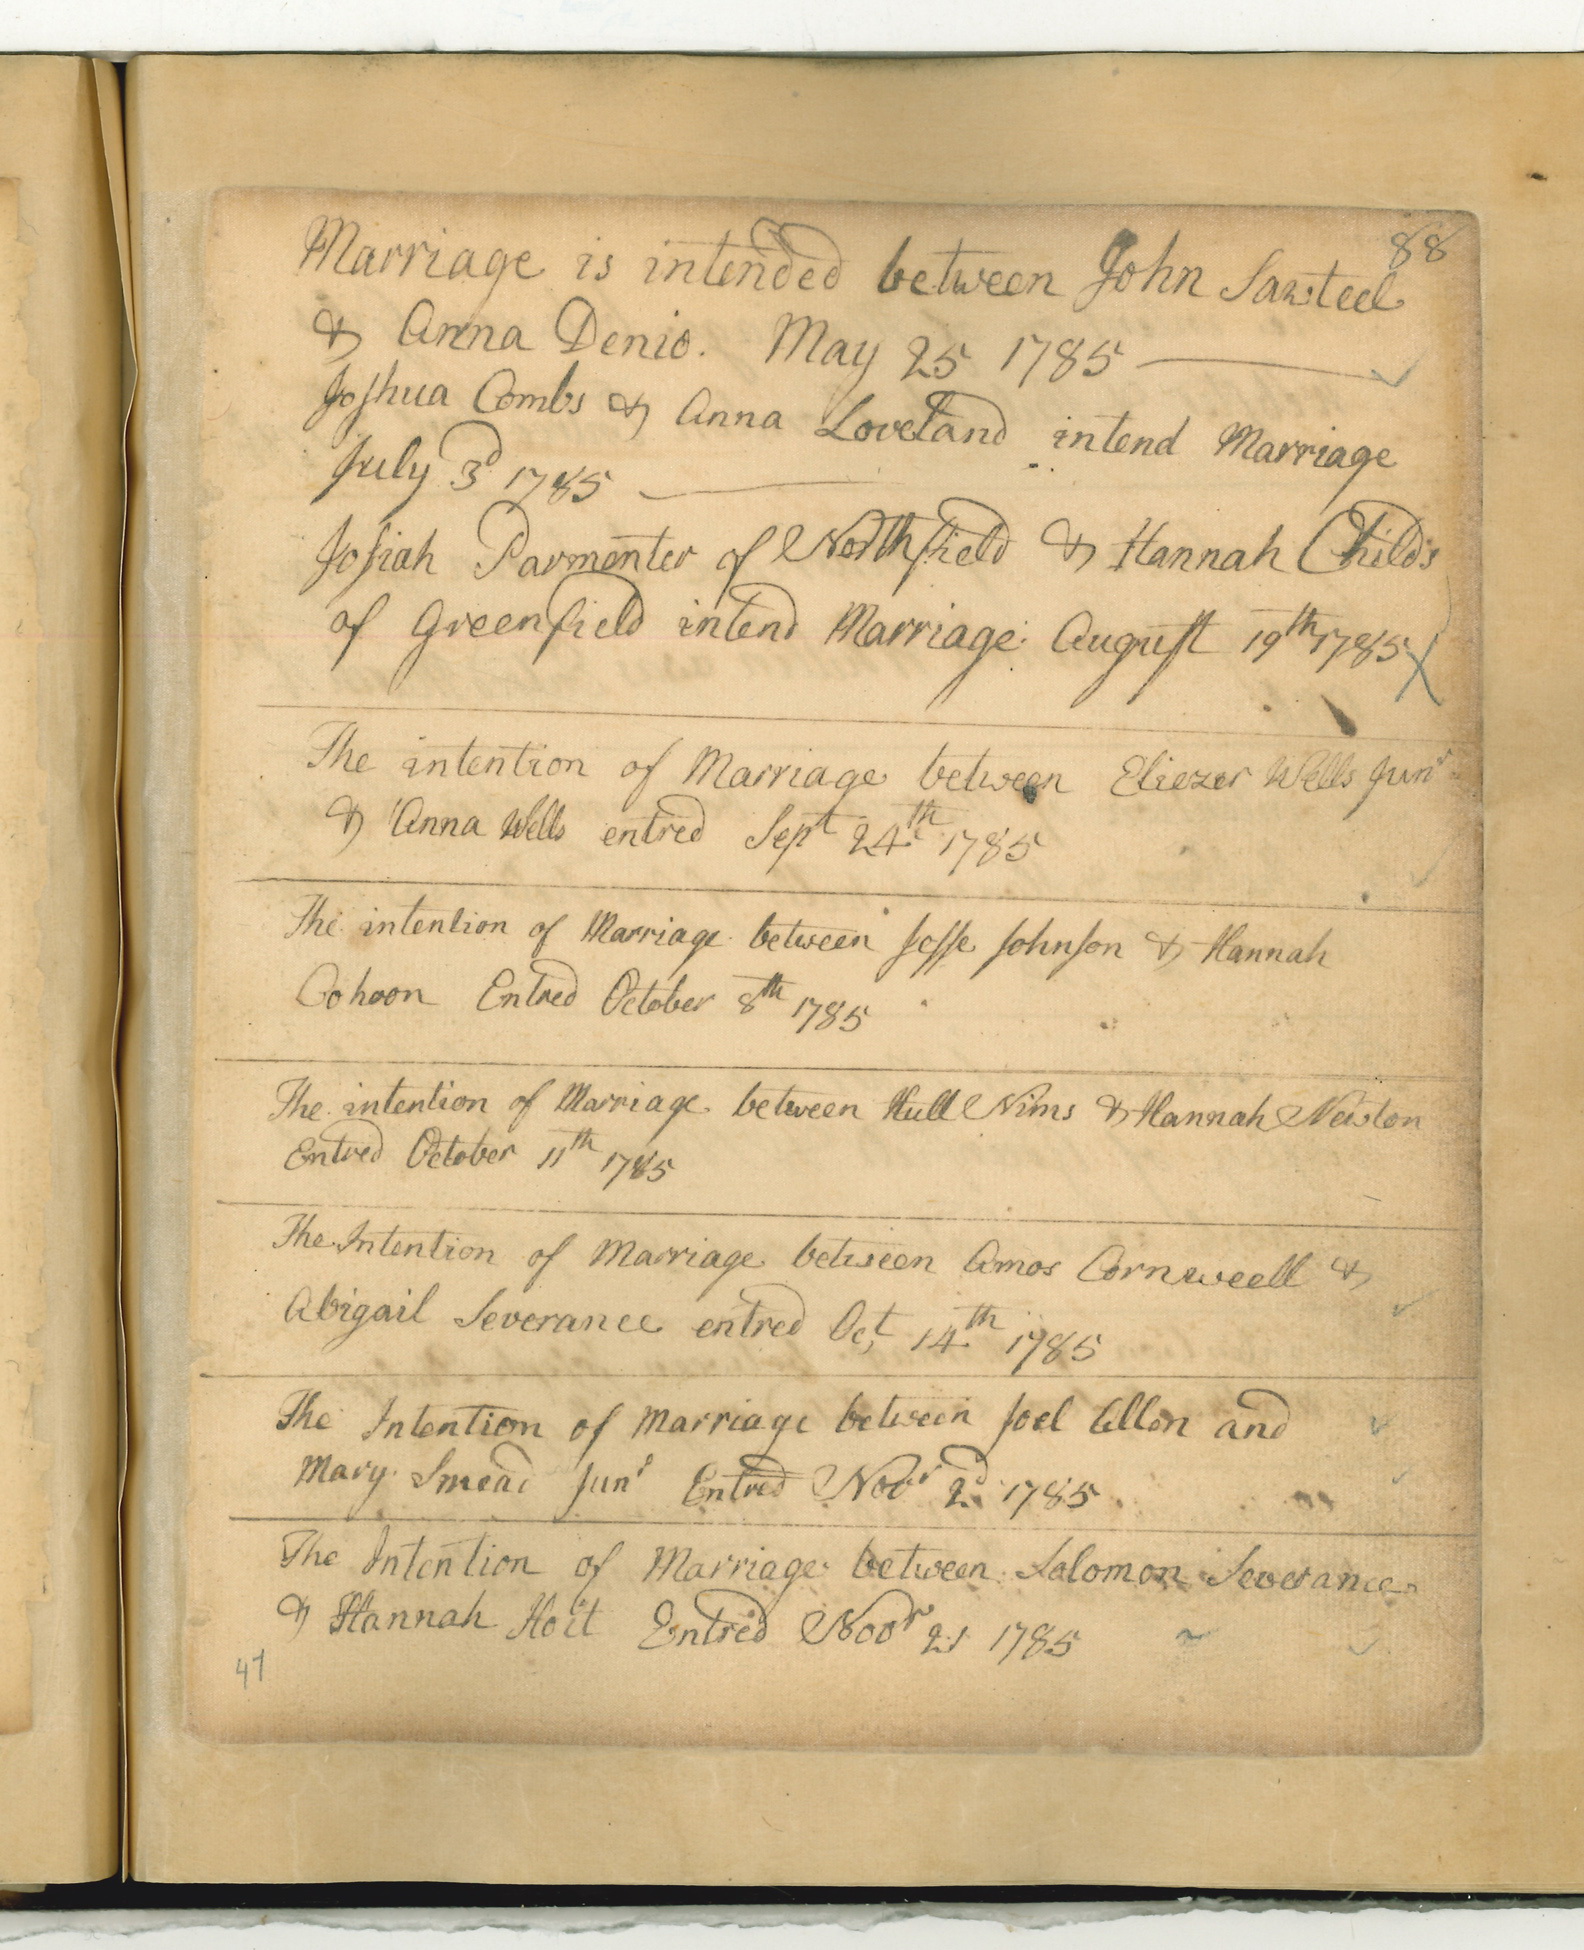 88
Marriage is intended between John Sawteel
& Anna Denio. May 25 1785
Joshua Combs & Anna Loveland intend Marriage
July 3d 1785
Josiah Parmenter of Northfield & Hannah Childs
of Greenfield intend Marriage August 19th 1785 X
The intention of Marriage between Eliezer Wells Junr
& Anna Wells entred Sept 24th 1785
The intention of Marriage between Jesse Johnson & Hannah
Cohoon Entred October 8th 1785
The intention of Marriage between Hull Nims & Hannah Newton
Entred October 11th 1785
The Intention of Marriage between Amos Cornweell &
Abigail Severance entred Oct 14th 1785
The Intention of Marriage between Joel Allen and
Mary Smead Junr Entred Novr 2d 1785
The Intention of Marriage between Solomon Severance
& Hannah Hoit Entred Novr 21 1785
47